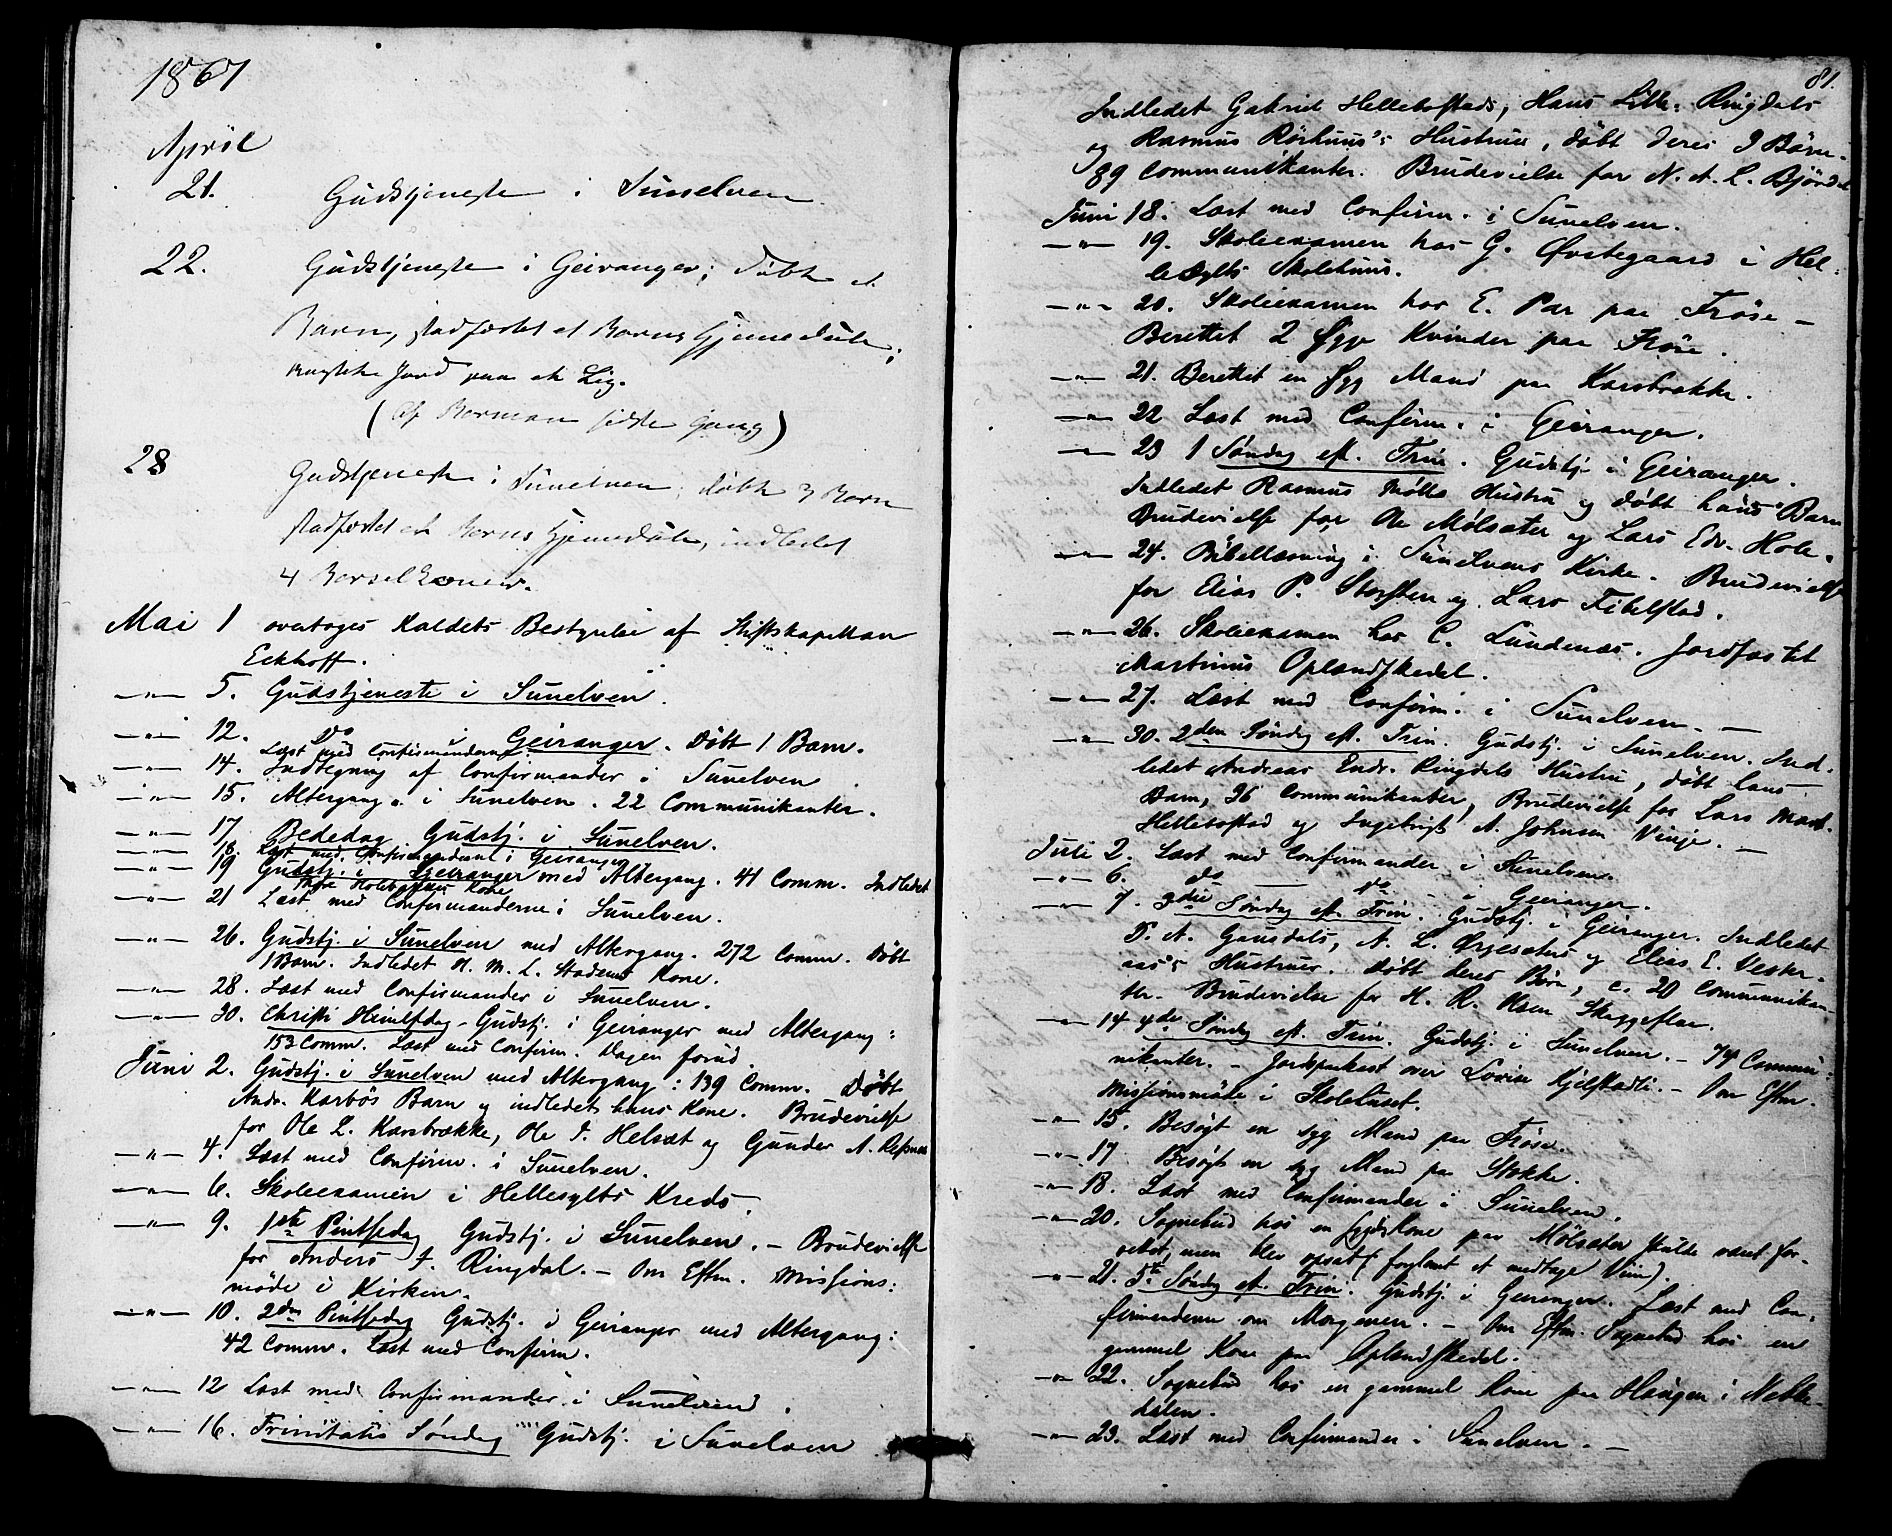 1867
April
21. Gudstjeneste i Sunelven.
22. Gudstjeneste i Geiranger; døbt et
Barn, stadfæstet et Barns Hjemmedaab,
kastet Jord paa et Lig.
(af Borman sidste Gang)
28 Gudstjeneste i Sunelven; døbt 3 Børn
stadfæstet et Barns Hjemmedaab, indledet
4 Barselkoner.
Mai 1 overtoges Kaldets Bestyrelse af Stiftskapellan
Eckhoff.
—"— 5. Gudstjeneste i Sunelven.
—"— 12. Do i Geiranger. Døbt 1 Barn.
Læst med Confirmanderne
—"— 14. Indtegning af Confirmander i Sunelven
—"— 15. Altergang i Sunelven. 22 Communikanter.
—"— 17. Bededag Gudstj. i Sunelven.
—"— 18. Læst med Confirmanderne i Geiranger.
—"— 19 Gudstj. i Geiranger med Altergang. 41 Comm. Indledet
Kone
—"— 21 Læst med Confirmanderne i Sunelven.
—"— 26. Gudstj. i Sunelven med Altergang. 272 Comm. Døbt
1 Barn. Indledet H. M. L. Stadems Kone.
—"— 28. Læst med Confirmander i Sunelven.
—"— 30. Christi Himlfdag. Gudstj. i Geiranger med Altergang:
153 Comm. Læst med Confirm. Dagen forud.
Juni 2. Gudstj. i Sunelven med Altergang: 139 Comm. Døbt
Andr. Karbøs Barn og indledet hans Kone. Brudevielse
for Ole L. Karsbrække, Ole I. Helsæt og Gunder A. Ræfsnæs
—"— 4. Læst med Confirm. i Sunelven.
—"— 6. Skoleexamen i Hellesylts Kreds.
—"— 9. 1ste Pintsedag Gudstj. i Sunelven. – Brudevielse
for Anders I. Ringdal. – Om Eftm. Missions:
møde i Kirken.
—"— 10. 2den Pintsedag Gudstj. i Geiranger med Altergang:
42 Comm. Læst med Confirm.
—"— 12 Læst med Confirmander i Sunelven.
—"— 16. Trinitatis Søndag Gudstj. i Sunelven
81.
Indledet Gabriel Hellebostads, Hans Lill. Ringdals
og Rasmus Rørhuus's Hustruer, døbt deres 3 Børn.
89 Communikanter. Brudevielse for N. A. L. Bjørdal
Juni 18. Læst med Confirm. i Sunelven.
—"— 19. Skoleexamen hos G. Øvstegaard i Hel:
lesylts Skolehuus.
—"— 20. Skoleexamen hos E. Par paa Frøse –
Berettet 2 Syge Kvinder paa Frøse.
—"— 21. Berettet en Syg Mand paa Karsbrække.
—"— 22 Læst med Confirm. i Geiranger.
—"— 23 1 Søndag eft. Trin. Gudstj. i Geiranger.
Indledet Rasmus Mølls Hustru og døbt hans Barn
Brudevielse for Ole Mølsæter og Lars Edv. Hole.
—"— 24. Bibellæsning i Sunelvens Kirke. Brudevielse
for Elias P. Storsten og Lars Fibelstad.
—"— 26. Skoleexamen hos C. Lundenæs. Jordfæstet
Martinus Oplandskedel.
—"— 27. Læst med Confirm. i Sunelven. —
—"— 30. 2den Søndag eft. Trin. Gudstj. i Sunelven. Ind-
ledet Andreas Endr. Ringdals Hustru, døbt hans
Barn, 36 Communikanter, Brudevielse for Lars Mart.
Hellebostad og Ingebrigt A. Johnsen Vinje. —
Juli 2. Læst med Confirmander i Sunelven.
—"— 6. do — do — i Geiranger.
—"— 7. 3die Søndag eft. Trin. Gudstj. i Geiranger. Indledet
P. A. Gausdals, A. L. Ørjesæters og Elias E. Vester-
aas's Hustruer. Døbt deres Børn, c. 20 Communikan-
ter. Brudevielse for H. R. Olsen Skaggeflaa.
—"— 14 4de Søndag eft. Trin. Gudstj. i Sunelven. – 74 Commu:
nikanter. – Jordpaakast over Lovise Kjelstadli. – Om Eftm.
Missionsmøde i Skolehuset.
—"— 15. Besøgt en syg Mand paa Frøse.
—"— 17. Besøgt en syg Mand paa Stokke.
—"— 18. Læst med Confirmander i Sunelven.
—"— 20. Sognebud hos en syg Kone paa Mølsæter skulde været for-
rettet, men blev opsat (forglemt at medtage Viin).
—"— 21. 5te Søndag eft. Trin. Gudstj. i Geiranger. Læst med Con-
firmanderne om Morgenen. – Om Eftm. Sognebud hos en
gammel Kone paa Oplandskedel.
—"— 22. Sognebud hos en gammel Kone paa Haugen i Nebbe-
dalen.
—"— 23. Læst med Confirmander i Sunelven. —